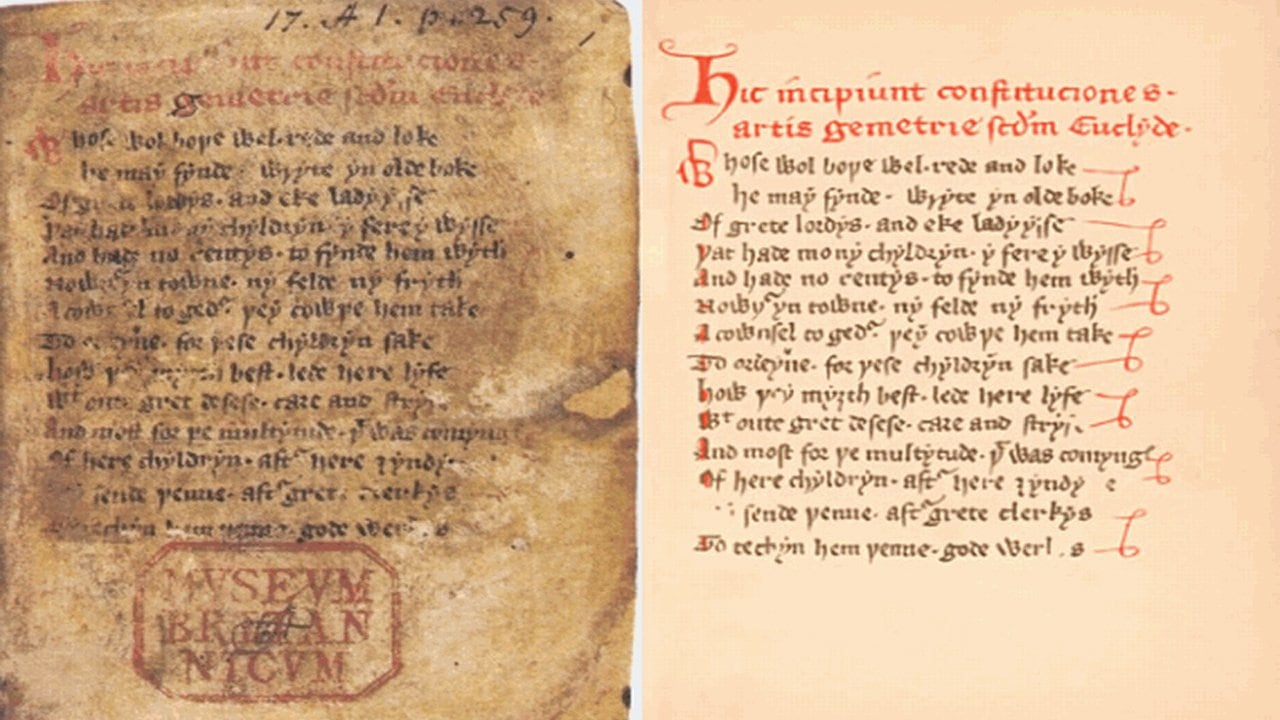 17. A 1. p. 259.
artis gemetrie scdm Euclyde
Whose wol bope wel rede and loke
he may fynde wryte yn olde boke
Of lordys. and eke ladyysse
Þat hade mony chyldryn. y fere y wysse
And hade no rentys. to fynde hem wyth
Nowþ yn towne. ny felde ny fryth
A cownsel to ged. þey cowþe hem take
To for þese chyldryn sake
how þey best. lede here lyfe
Wt oute gret desese. care and
And most for þe multytude. þt was comyng
Of here chyldryn. aft here zyndy
sende þenne. aft grete clerkys
techyn hem þenne. gode
MVSEVM
BRITAN
NICVM
Hic incipiunt constituciones.
artis gemetrie scdm Euclyde.
Whose wol bope wel. rede and loke
he may fynde. wryte yn olde boke
Of grete lordys. and eke ladyysse
Þat hade mony chyldryn. y fere y wysse
And hade no rentys. to fynde hem wyth
Nowþ yn towne. ny felde ny fryth
A cownsel to ged. þey cowþe hem take
To ordeyne. for þese chyldryn sake
how þey myzth best. lede here lyfe
Wt oute gret desese. care and stryf
And most for þe multytude. þt was comyng
Of here chyldryn. aft here zyndy
sende þenne. aft grete clerkys
To techyn hem þenne. gode werk s